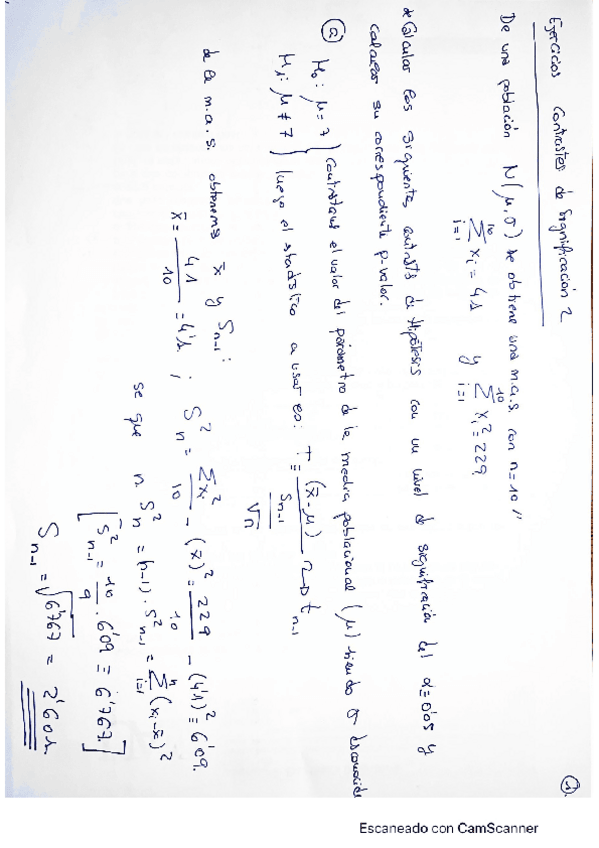 ①
Ejercicios Contrastes de Significación 2
De una población N(μ, σ) se obtiene una m.a.s. con n=10 //
10 Σ i=1 xᵢ = 41 y 10 Σ i=1 xᵢ² = 229
de Calcular los siguientes contrastes de Hipótesis con un nivel de significación del α=0'05 y
calcular su correspondiente p-valor.
ⓐ H₀: μ = 7 } contrastamos el valor del parámetro de la media poblacional (μ) siendo σ desconocida
H₁: μ ≠ 7 } luego el estadístico a usar es: T = (x̄ - μ) / (Sₙ₋₁ / √n) ~> tₙ₋₁
de la m.a.s. obtenemos x̄ y Sₙ₋₁:
x̄ = 41/10 = 4'1 ; S²ₙ = Σxᵢ²/10 - (x̄)² = 229/10 - (4'1)² = 6'09.
se que n S²ₙ = (n-1)·S²ₙ₋₁ = n Σ i=1 (xᵢ-x̄)²
[S²ₙ₋₁ = 10/9 · 6'09 = 6'767.]
Sₙ₋₁ = √6'767 = 2'601.
Escaneado con CamScanner